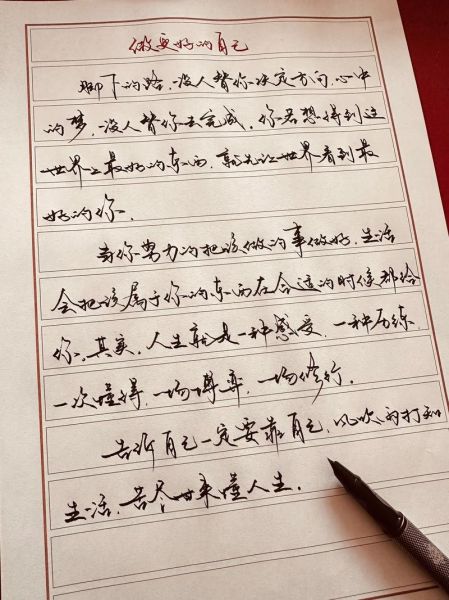 做更好的自己
脚下的路，没人替你决定方向，心中
的梦，没人替你去完成，你若想得到这
世界上最好的东西，就先让世界看到最
好的你。
当你努力的把该做的事做好，生活
会把该属于你的东西在合适的时候都给
你，其实，人生就是一种感受，一种历练，
一次懂得，一场博弈，一场修行。
告诉自己一定要靠自己，风吹雨打知
生活，苦尽甘来懂人生。